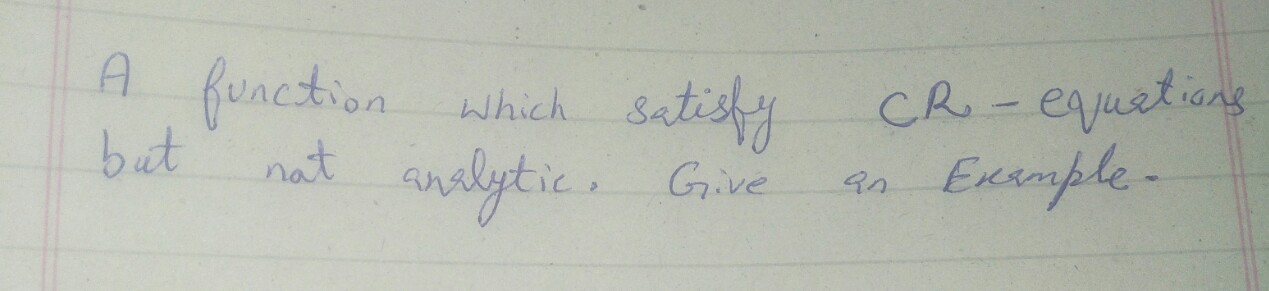 A function which satisfy CR - equations
but not analytic. Give an Example.